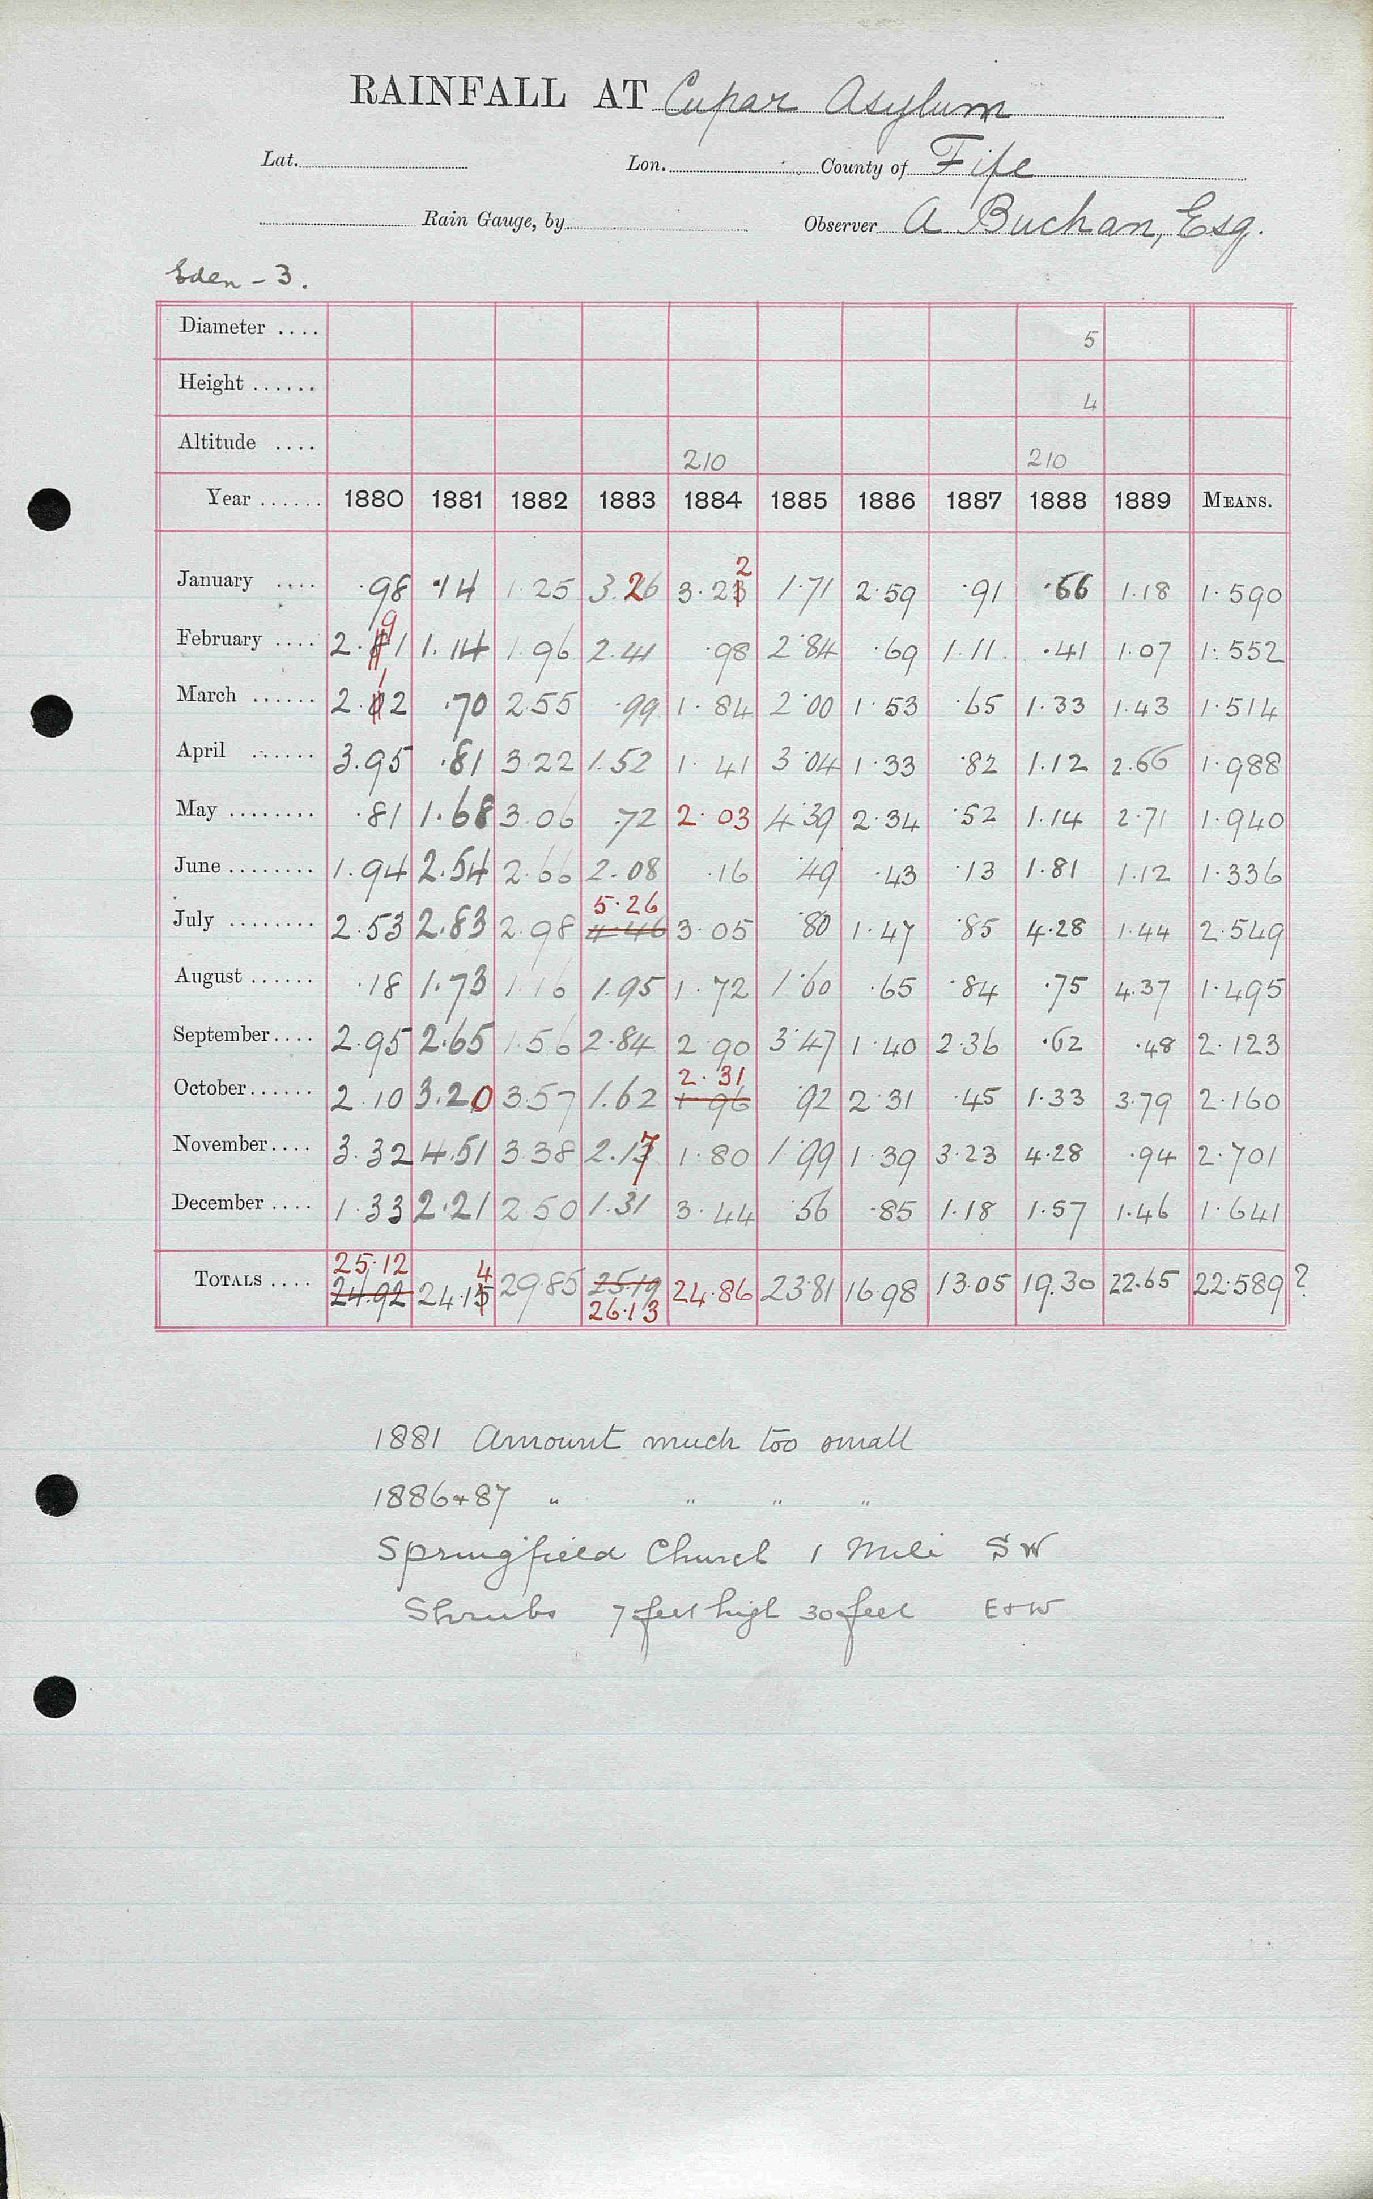 RAINFALL AT Cupar Asylum
Lat. Lon. County of Fife
Rain Gauge, by Observer A Buchan, Esq.
Eden - 3.
Diameter .... 5
Height ...... 4
Altitude .... 210 210
Year ...... 1880 1881 1882 1883 1884 1885 1886 1887 1888 1889 MEANS.
2
January .... ·98 ·14 1·25 3.26 3·23 1·71 2·59 ·91 ·66 1·18 1·590
9
February .... 2·11 1·14 1·96 2·41 ·98 2·84 ·69 1·11 ·41 1·07 1·552
1
March ...... 2·02 ·70 2·55 ·99 1·84 2·00 1·53 ·65 1·33 1·43 1·514
April ...... 3.95 ·81 3·22 1·52 1·41 3·04 1·33 ·82 1·12 2·66 1·988
May ........ ·81 1·68 3·06 ·72 2·03 4·39 2·34 ·52 1·14 2·71 1·940
June ........ 1·94 2·54 2·66 2·08 ·16 ·49 ·43 ·13 1·81 1·12 1·336
5·26
July ........ 2·53 2·83 2·98 4·46 3·05 ·80 1·47 ·85 4·28 1·44 2·549
August ...... ·18 1·73 1·16 1·95 1·72 1·60 ·65 ·84 ·75 4·37 1·495
September.... 2·95 2·65 1·56 2·84 2·90 3·47 1·40 2·36 ·62 ·48 2·123
2·31
October...... 2·10 3·20 3·57 1·62 1·96 ·92 2·31 ·45 1·33 3·79 2·160
7
November.... 3·32 4·51 3·38 2·13 1·80 1·99 1·39 3·23 4·28 ·94 2·701
December .... 1·33 2·21 2·50 1·31 3·44 ·56 ·85 1·18 1·57 1·46 1·641
25·12 4
TOTALS .... 24.92 24·15 29·85 25·19 24·86 23·81 16·98 13·05 19.30 22·65 22·589?
26·13
1881 Amount much too small
1886+87 " " " "
Springfield Church 1 Mile SW
Shrubs 7 feet high 30 feet E+W